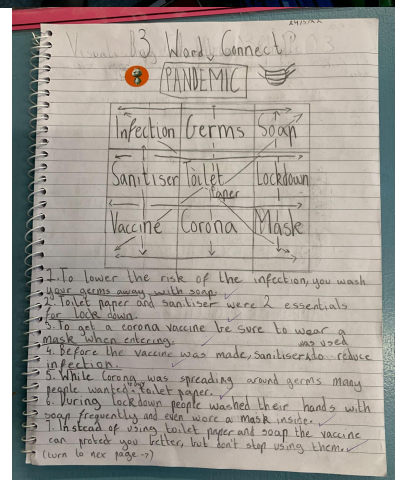 24/5/22
3 Word Connect
PANDEMIC
Infection Germs Soap
Sanitiser Toilet Paper Lockdown
Vaccine Corona Mask
1. To lower the risk of the infection, you wash
your germs away with soap.
2. Toilet paper and sanitiser were 2 essentials
for lock down.
3. To get a corona vaccine be sure to wear a
mask when entering.
4. Before the vaccine was made, sanitiser was used to reduce
infection.
5. While Corona was spreading around germs many
people wanted toilet paper.
6. During lockdown people washed their hands with
soap frequently and even wore a mask inside.
7. Instead of using toilet paper and soap the vaccine
can protect you better, but don't stop using them.
(turn to nex page →)